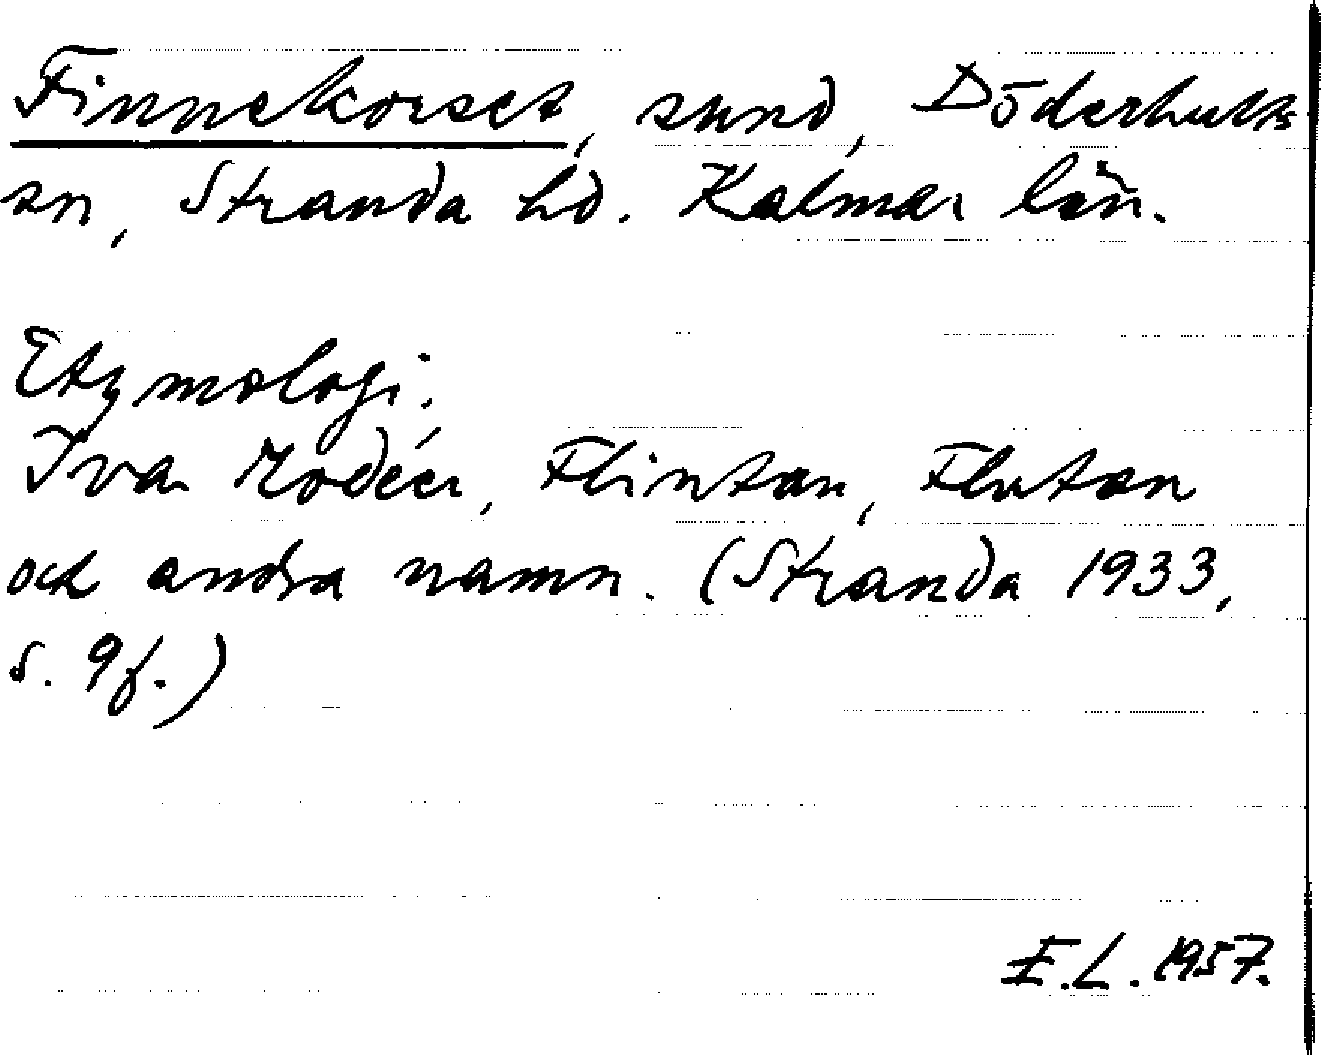 Finnekorset, sund, Döderhults
sn, Stranda hd. Kalmar län.
Etymologi:
Ivar Modéer, Flintan, Flutan
och andra namn. (Stranda 1933,
s. 9f.)
E.L. 1957.